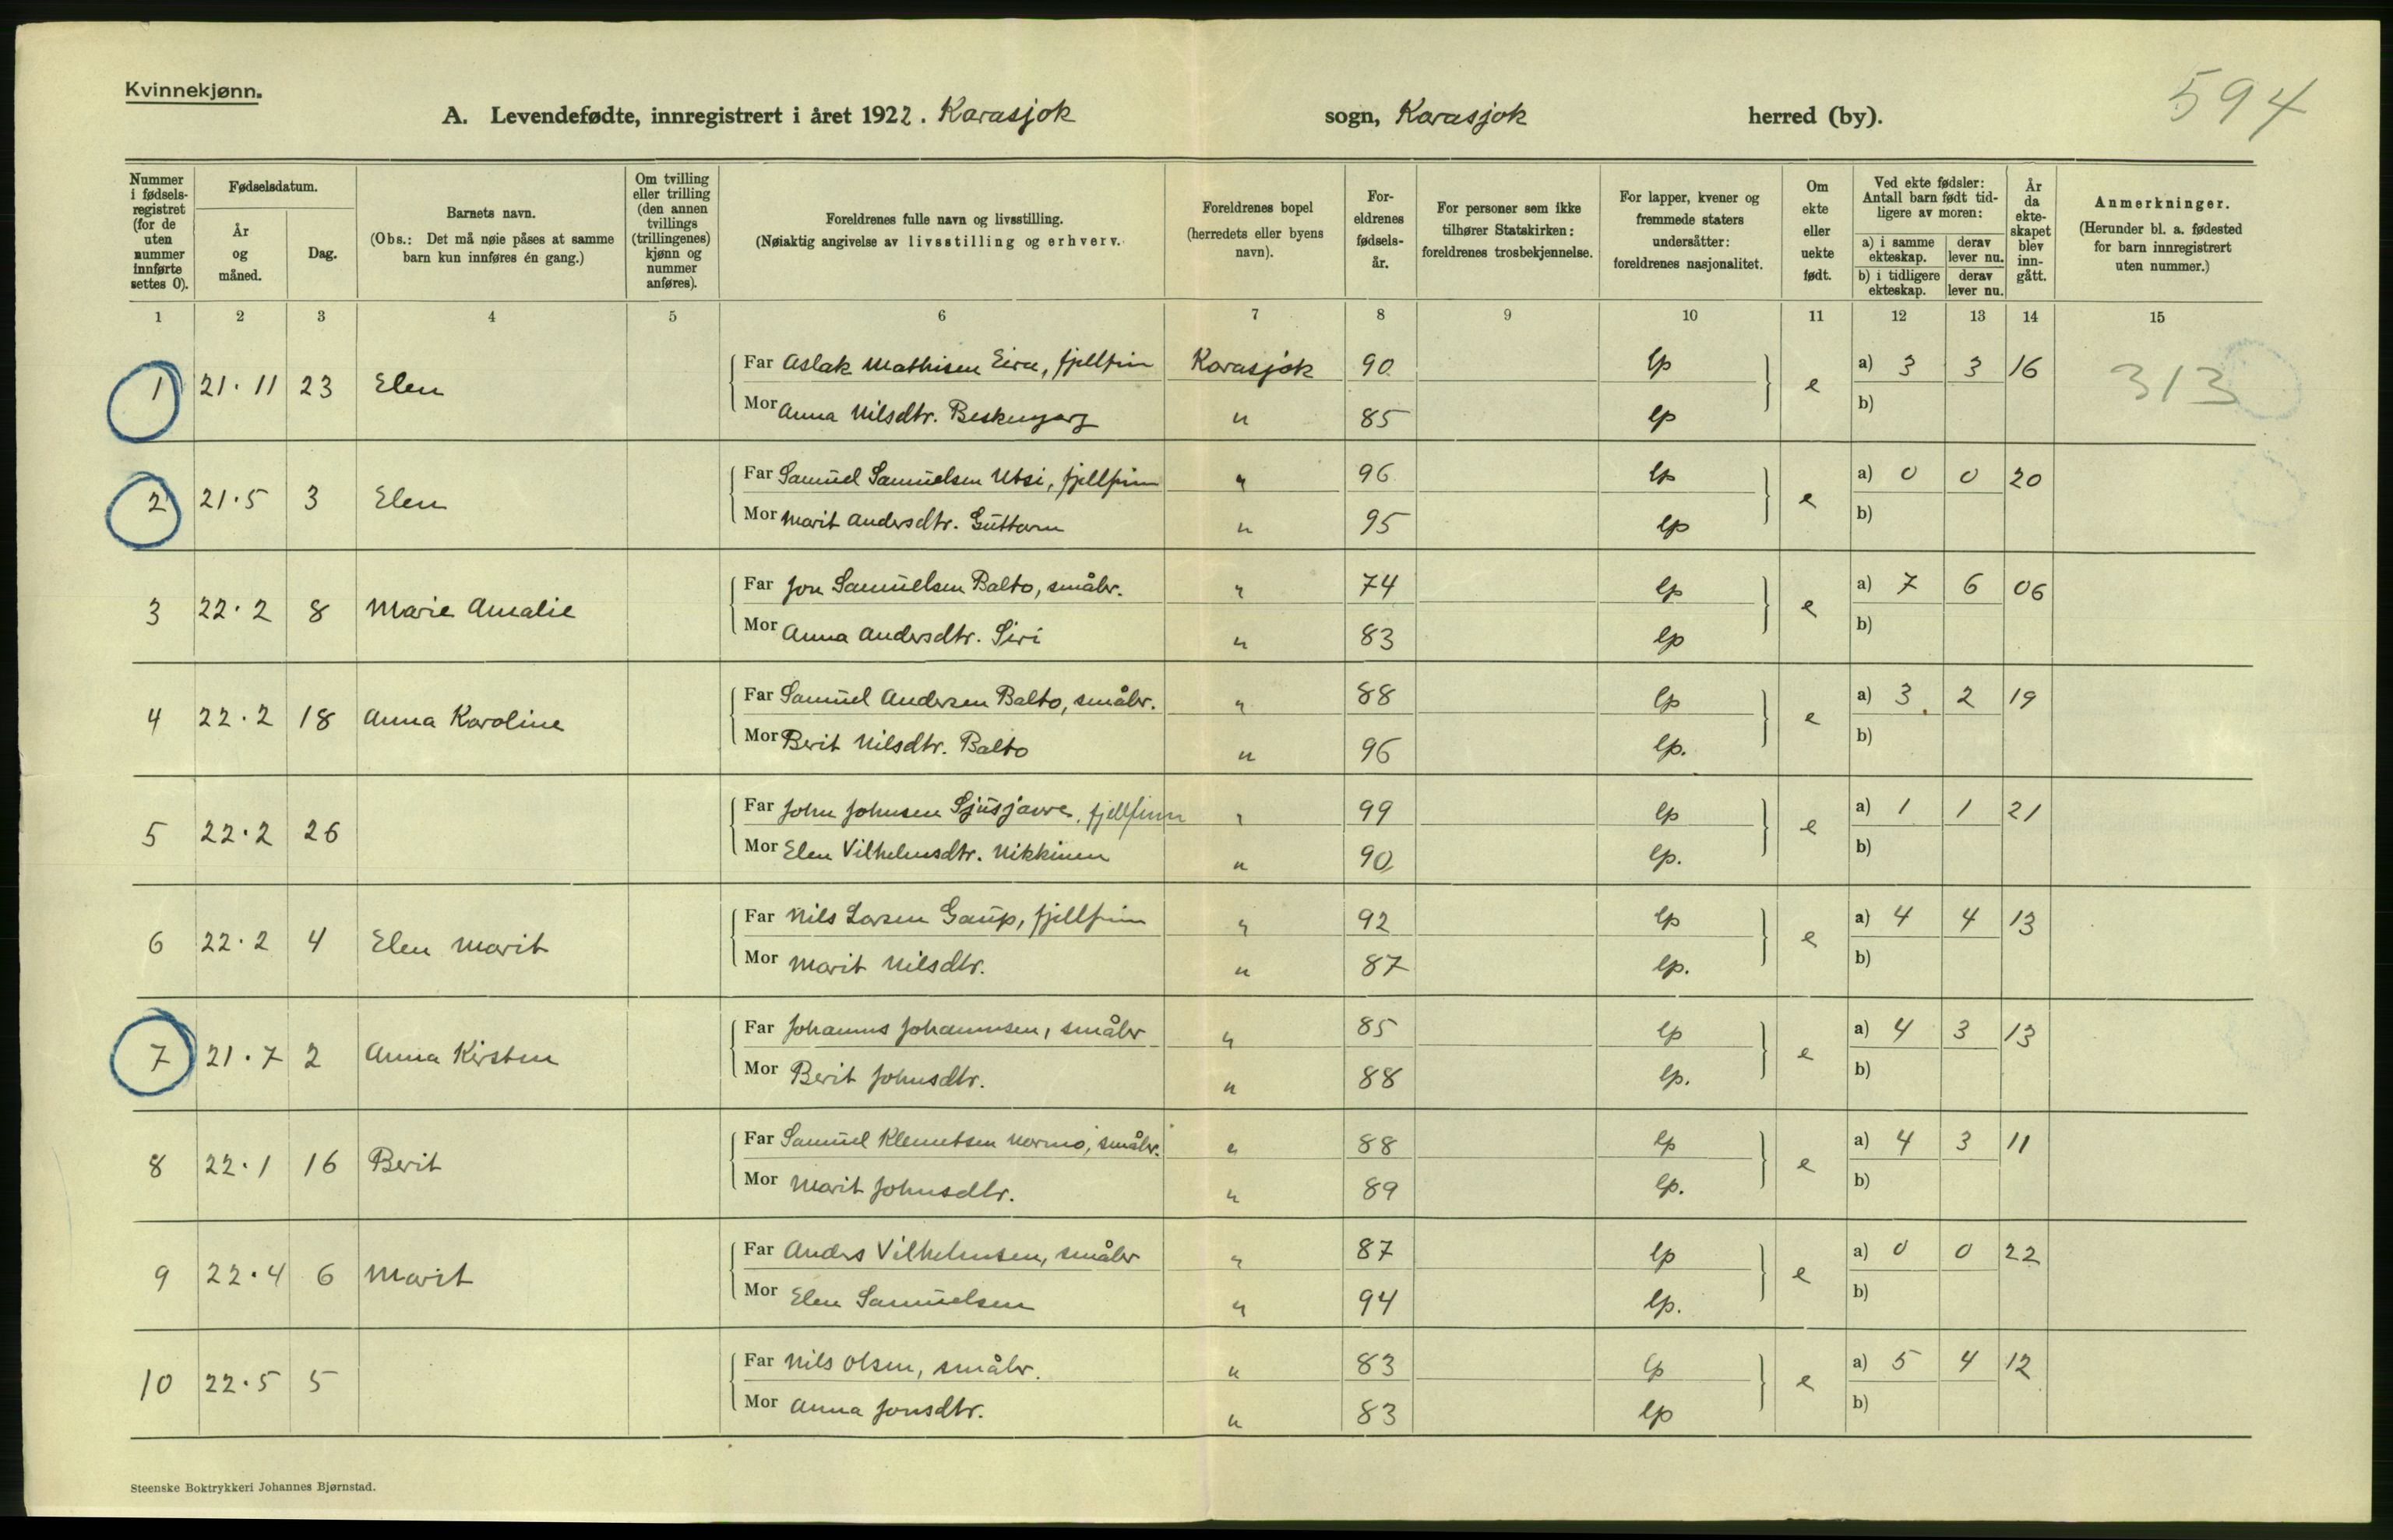 Kvinnekjønn.
594
A. Levendefødte, innregistrert i året 1922. Karasjok sogn, Karasjok herred (by).
Nummer i fødsels-registret (for de uten nummer innførte settes 0).
Fødselsdatum.
År og måned.
Dag.
Barnets navn.
(Obs.: Det må nøie påses at samme barn kun innføres én gang.)
Om tvilling eller trilling (den annen tvillings (trillingenes) kjønn og nummer anføres).
Foreldrenes fulle navn og livsstilling.
(Nøiaktig angivelse av livsstilling og erhverv.)
Foreldrenes bopel (herredets eller byens navn).
For-eldrenes fødsels-år.
For personer som ikke tilhører Statskirken: foreldrenes trosbekjennelse.
For lapper, kvener og fremmede staters undersåtter: foreldrenes nasjonalitet.
Om ekte eller uekte født.
Ved ekte fødsler: Antall barn født tid-ligere av moren:
a) i samme ekteskap.
derav lever nu.
b) i tidligere ekteskap.
derav lever nu.
År da ekte-skapet blev inn-gått.
Anmerkninger.
(Herunder bl. a. fødested for barn innregistrert uten nummer.)
1 2 3 4 5 6 7 8 9 10 11 12 13 14 15
1 21·11 23 Elen Far Aslak Mathisen Eira, fjellfin Karasjok 90 lp e a) 3 3 16 313
Mor Anna Nilsdtr. " 85 lp b)
2 21·5 3 Elen Far Samuel Samuelsen Utsi, fjellfinn " 96 lp e a) 0 0 20
Mor Marit Andersdtr. Guttorm " 95 lp b)
3 22·2 8 Marie Amalie Far Jon Samuelsen Balto, småbr. " 74 lp e a) 7 6 06
Mor Anna Andersdtr. Siri " 83 lp b)
4 22·2 18 Anna Karoline Far Samuel Andersen Balto, småbr. " 88 lp e a) 3 2 19
Mor Berit Nilsdtr. Balto " 96 lp. b)
5 22·2 26 Far John Johnsen Sjusjavre, fjellfinn " 99 lp e a) 1 1 21
Mor Elen Vilhelmsdtr. Nikkinen " 90 lp. b)
6 22·2 4 Elen Marit Far Nils Larsen Gaup, fjellfin " 92 lp e a) 4 4 13
Mor Marit Nilsdtr. " 87 lp. b)
7 21·7 2 Anna Kirsten Far Johannes Johannesen, småbr " 85 lp e a) 4 3 13
Mor Berit Johnsdtr. " 88 lp. b)
8 22·1 16 Berit Far Samuel Klemetsen Normo, småbr. " 88 lp e a) 4 3 11
Mor Marit Johnsdtr. " 89 lp. b)
9 22·4 6 Marit Far Anders Vilhelmsen, småbr " 87 lp e a) 0 0 22
Mor Elen Samuelsen " 94 lp. b)
10 22·5 5 Far Nils Olsen, småbr. " 83 lp e a) 5 4 12
Mor Anna Jonsdtr. " 83 lp b)
Steenske Boktrykkeri Johannes Bjørnstad.